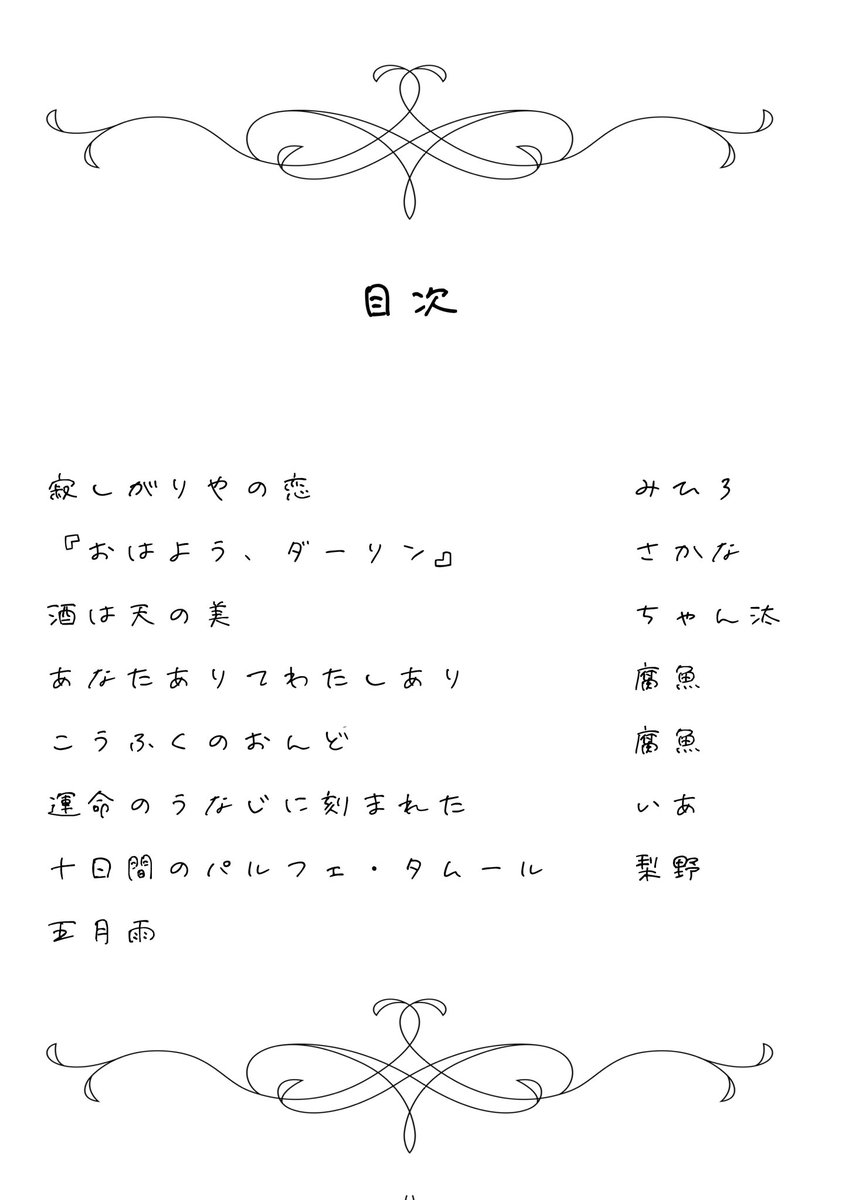 目次
寂しがりやの恋 みひろ
『おはよう、ダーリン』 さかな
酒は天の美 ちゃん汰
あなたありてわたしあり 腐魚
こうふくのおんど 腐魚
運命のうなじに刻まれた いあ
十日間のパルフェ・タムール 梨野
五月雨